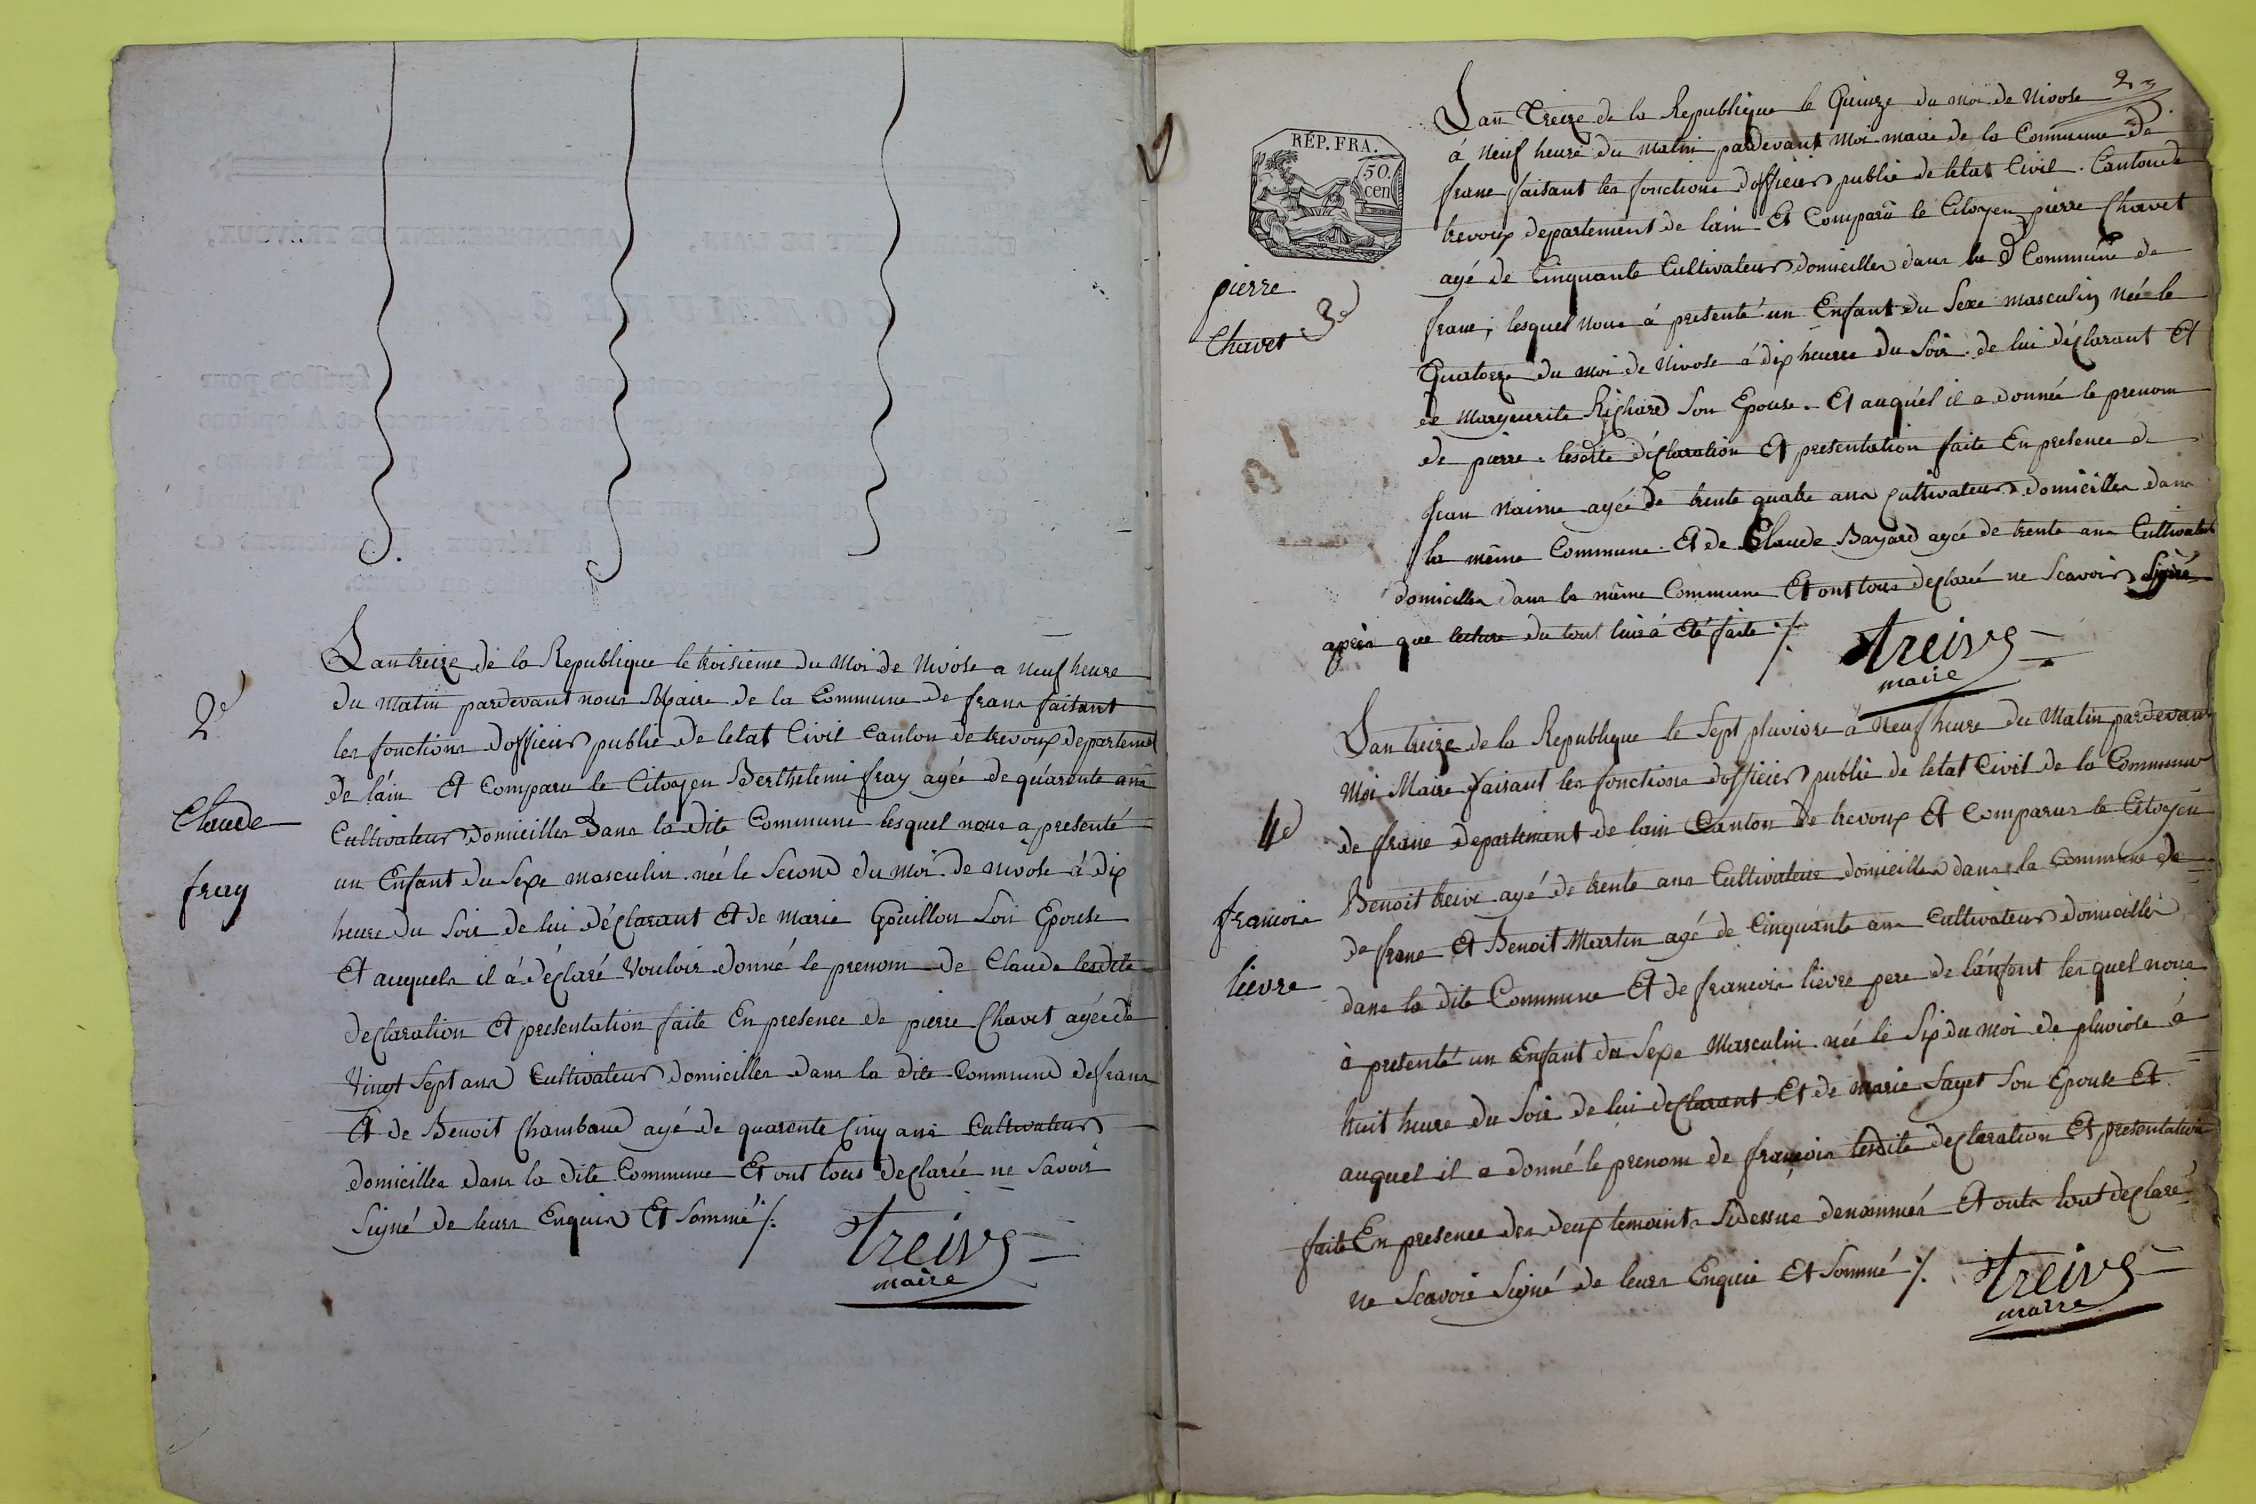 2e
Claude
fray
Lan treize de la Republique le troisieme du Moi de Nivose a neuf heure
du Matin pardevant nous Maire de la Commune de frans faitant
les fonctions dofficier public de letat Civil Canton de trevoux departement
de lain Et Comparu le Citoyen Berthelemi fray agée de quarante ans
Cultivateur domicillés dans la dite Commune lesquel nous a presenté
un Enfant du Sexe masculin née le Second du moi de nivose à dix
heure du Soir de lui déclarant Et de marie Gouillon Son Epouse
Et auquels il à déclaré Vouloir donné le prenom de Claude lesdite
declaration Et presentation faite En presence de pierre Chavet agée de
Vingt Sept ans Cultivateur domicilles dans la dite Commune de frans
Et de Benoit Chambaud agé de quarente Cinq ans Cultivateur
domicilles dans la dite Commune Et ont tous declarée ne Savoir
Signé de leurs Enquis Et Sommé ./.
treive
maire
2
RÉP. FRA.
50.
cen
pierre
Chavet
3e
Lan treize de la Republique le Quinze du moi de Nivose
à Neuf heure du matin pardevant Moi maire de la Commune de
frans faitant les fonctions dofficier public de letat Civil. Canton de
trevoux departement de lain Et Comparu le Citoyen pierre Chavet
agé de Cinquante Cultivateur domicilles dans la d Commune de
frans; lesquel Nous à presenté un Enfant du Sexe masculin née le
Quatorze du moi de Nivose à dix heures du Soir de lui déclarant Et
de Marguerite Richard Son Epouse. Et auquel il a donnée le prenom
de pierre. lesdite déclaration Et presentation faite En presence de
Jean Naime agée de trente quatre ans Cultivateur domicilles dans
la même Commune. Et de Claude Bayard agée de trente ans Cultivateur
domicilles dans la même Commune Et ont tous declaré ne Scavoir Signé
après que lecture du tout luis à été faite ./.
treive
maire
4e
francois
lievre
Lan treize de la Republique le Sept pluviose à Neuf heure du Matin pardevant
Moi Maire faisant les fonctions dofficier public de letat Civil de la Commune
de frans departement de lain Canton de trevoux Et Comparus le Citoyen
Benoit treive agé de trente ans Cultivateur domicilles dans la Commune de
de frans Et Benoit Martin agé de Cinquante ans Cultivateur domicilles
dans la dite Commune Et de francois lievre pere de lanfant lesquel nous
à presenté un Enfant du Sexe Masculin née le Six du moi de pluviose à
huit heure du Soir de lui declarant Et de marie Sayet Son Epouse Et
auquel il a donné le prenom de francois lesdite declaration Et presentation
faite En presence des deux temoints Sidessus denommés Et onts tout declaré
ne Scavoir Signé de leurs Enquis Et Sommé ./.
treive
maire